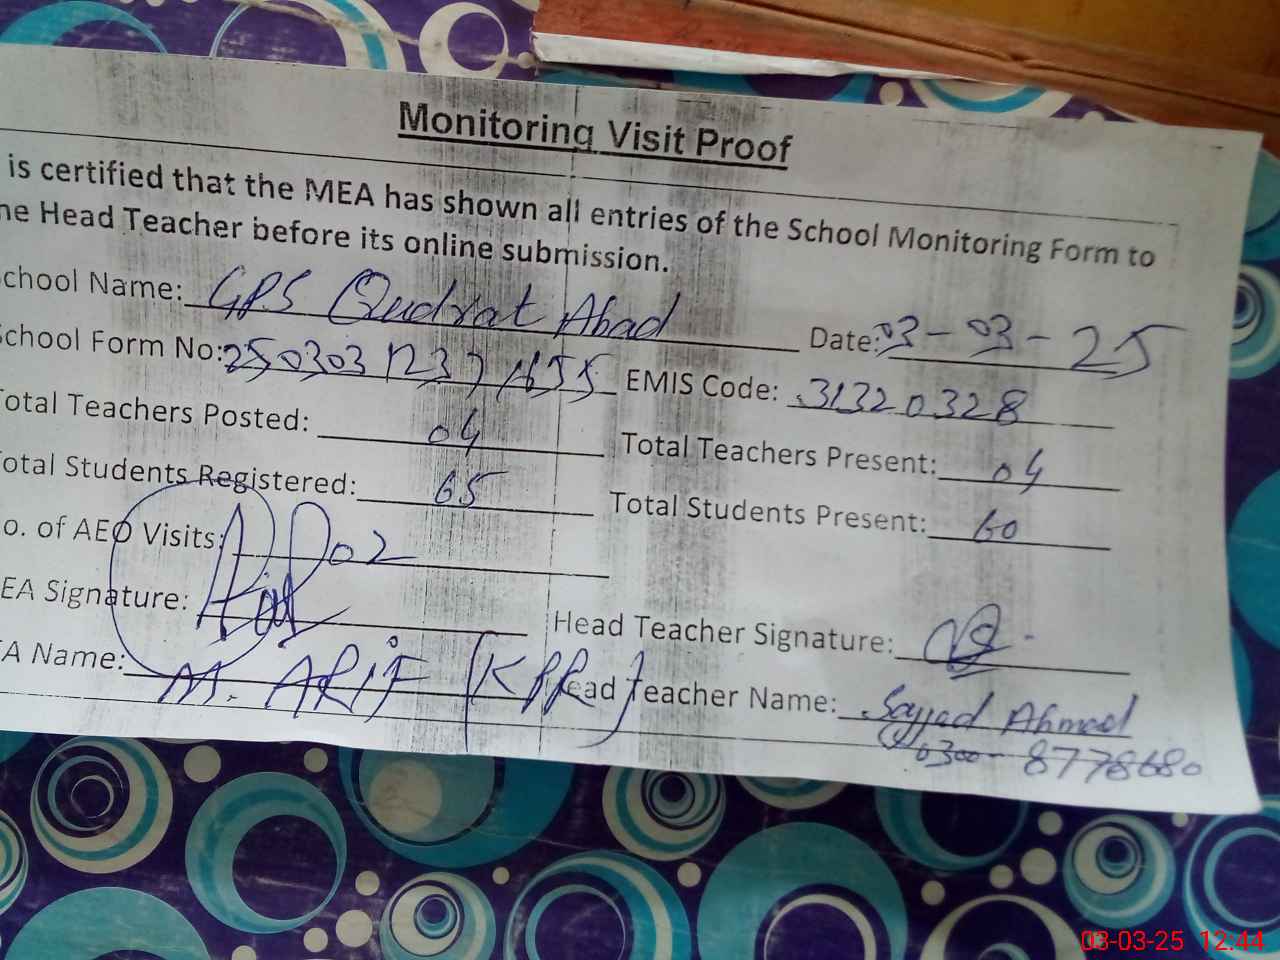 Monitoring Visit Proof
is certified that the MEA has shown all entries of the School Monitoring Form to
he Head Teacher before its online submission.
chool Name: GPS Qudrat Abad Date: 03-03-25
School Form No: EMIS Code: 31320328
Total Teachers Posted: 04 Total Teachers Present: 04
Total Students Registered: 65 Total Students Present: 60
o. of AEO Visits: 02
EA Signature: Head Teacher Signature:
EA Name: M. ARIF (KPR) Head Teacher Name: Sajjad Ahmad
0300-8778680
03-03-25 12:44